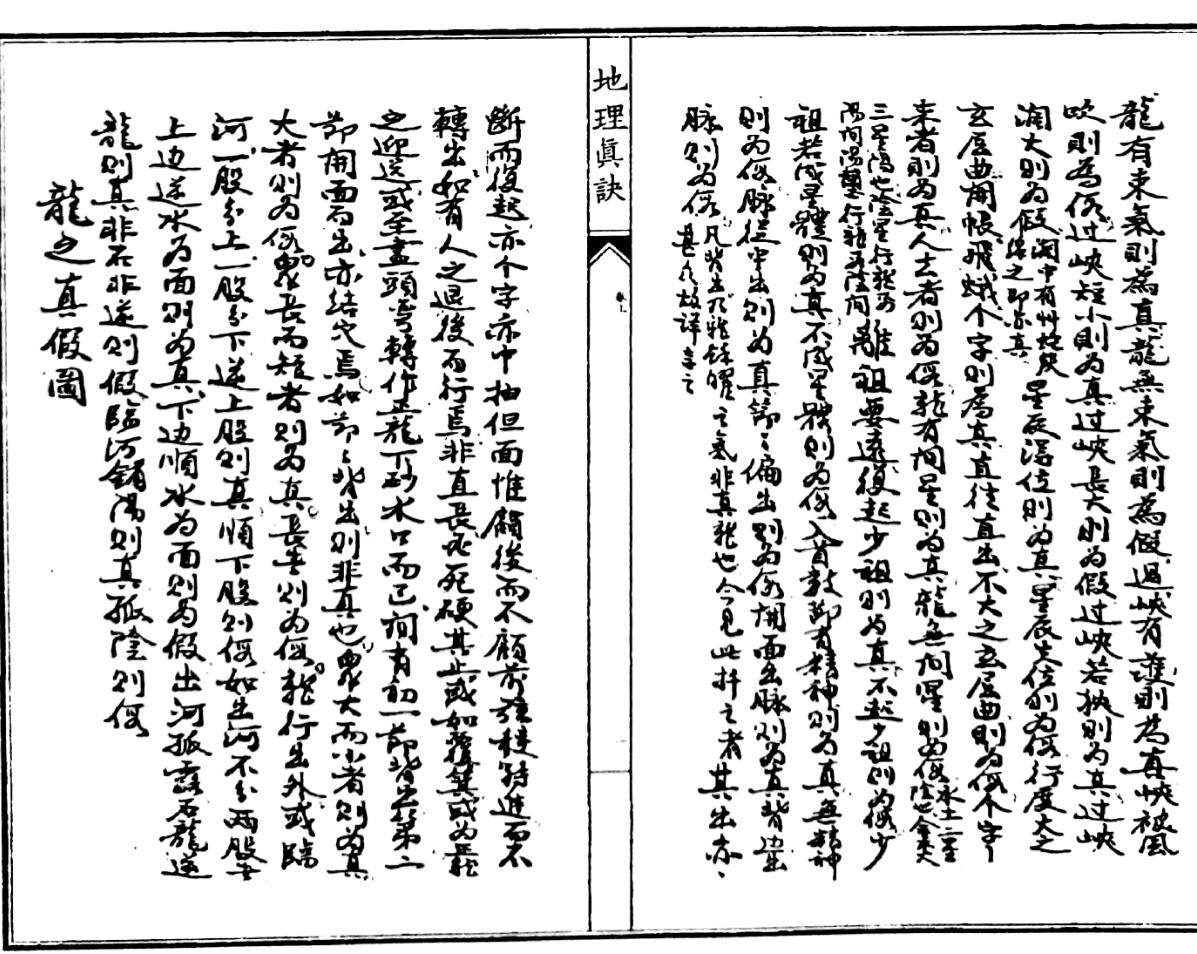 龍有束氣則為真龍無束氣則為假過峽有護則為真峽被風
吹則為假過峽短小則為真過峽長大則為假過峽若狹則為真過峽
濶大則為假濶中有
星辰得位則為真星辰失位則為假行度大之
玄屈曲開帳飛蛾个字則為真直徃直出不大之玄屈曲則為假个字
来者則為真人去者則為假龍有間星則為真龍無間星則為假水土二星
三星陽也
祖要遠後起少祖則為真不起少祖則為假少
祖若成星體則為真不成星體則為假入首數節有精神則為真無精神
則為假脉從中出則為真節々偏出則為假開面出脉則為真背边出
脉則為假凡背出乃龍餘
之氣非真龍也今見此扦之者甚出亦々
甚多故詳言之
地理眞訣
斷而後起亦个字亦中抽但面惟顧後而不顧前
進而不
轉出如有人之退後而行焉非直長死硬其止或如覆箕或為
之迎送或至盡頭弯轉作正龍下砂水口而已間有初一節背出第二
節開面而出亦結穴焉如節々背出則非真也眾大而小者則為真
大者則為假眾長而短者則為真長者則為假龍行出外或臨
河一股分上一股分下逆上股則真順下股則假如出河不分兩股
上边逆水為面則為真下边順水為面則為假出河孤露石龍逆
龍則真非石非逆則假臨河
陽則真孤陰則假
龍之真假圖